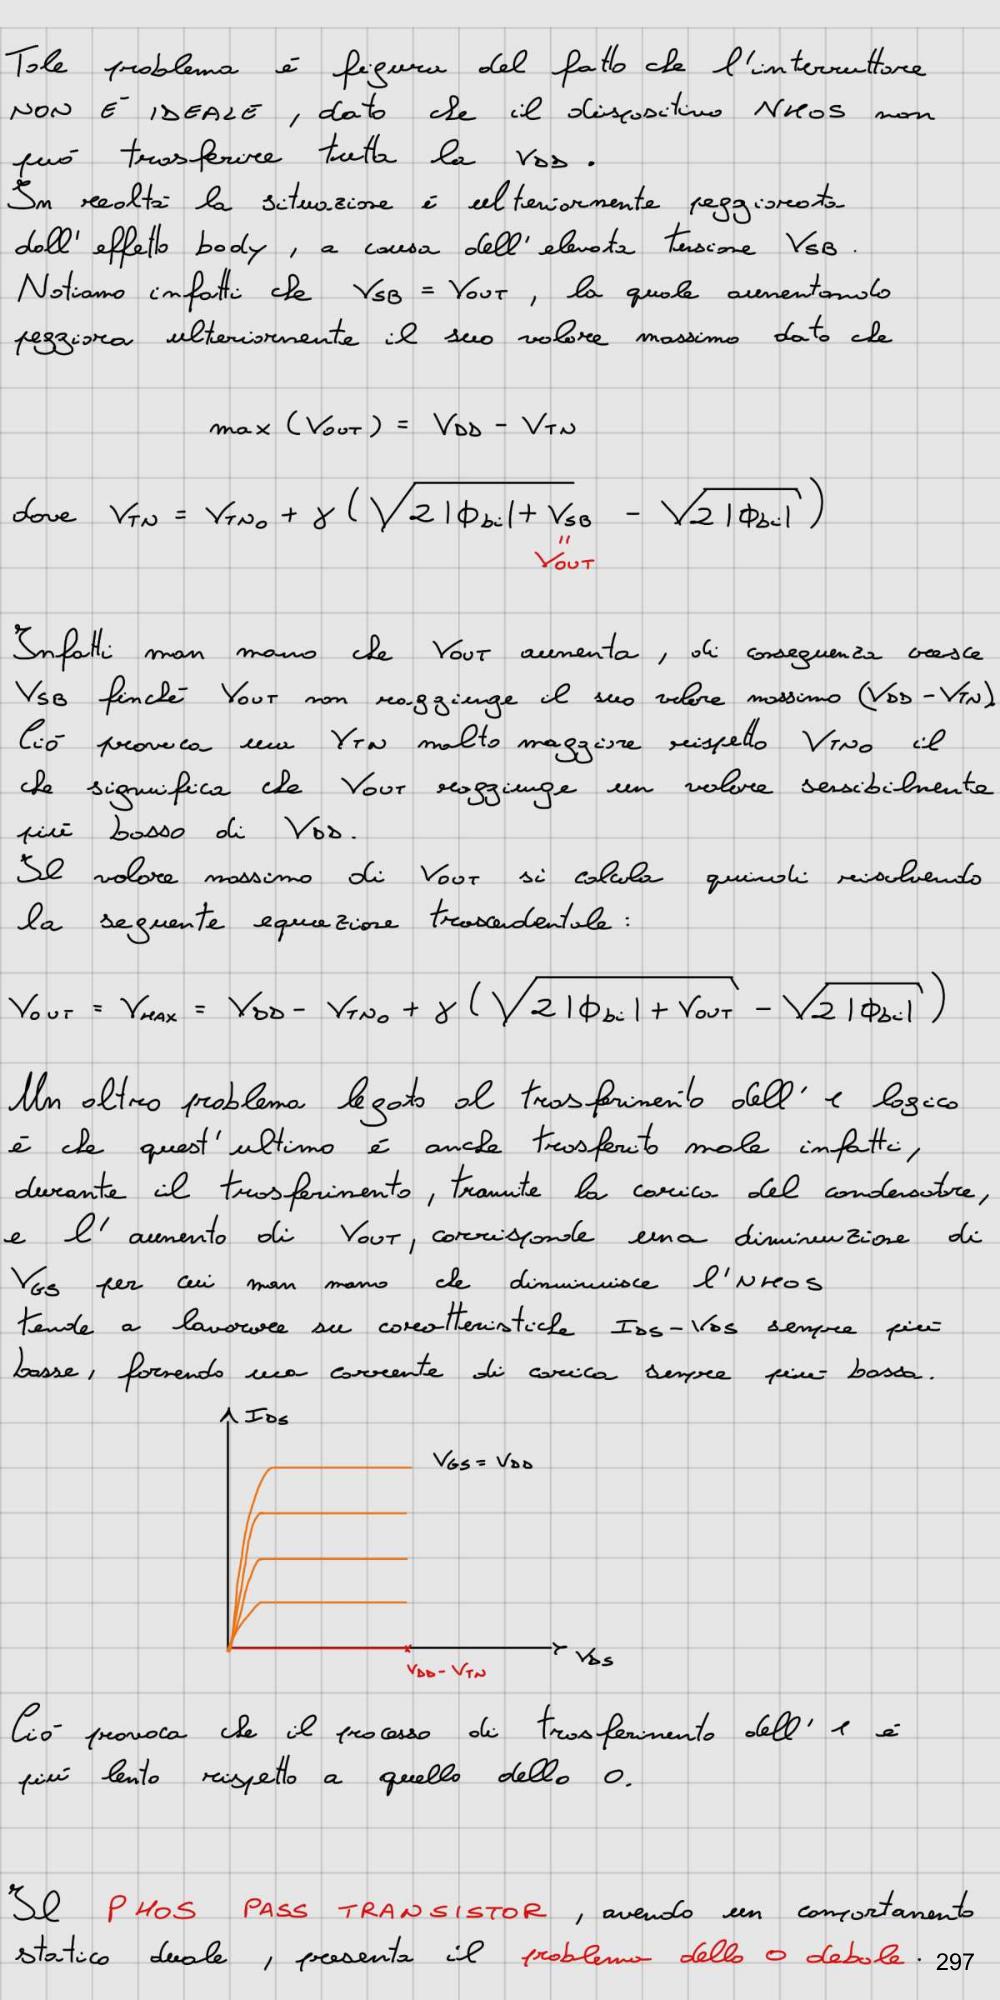 Tale problema è figura del fatto che l'interruttore
NON È IDEALE, dato che il dispositivo NMOS non
può trasferire tutta la VDD.
In realtà la situazione è ulteriormente peggiorata
dall'effetto body, a causa dell'elevata tensione VSB.
Notiamo infatti che VSB = VOUT, la quale aumentando
peggiora ulteriormente il suo valore massimo dato che
max (VOUT) = VDD - VTN
dove VTN = VTN0 + γ (√2|ϕbi| + VSB - √2|ϕbi|)
"
VOUT
Infatti man mano che VOUT aumenta, di conseguenza cresce
VSB finchè VOUT non raggiunge il suo valore massimo (VDD - VTN)
Ciò provoca una VTN molto maggiore rispetto VTN0 il
che significa che VOUT raggiunge un valore sensibilmente
più basso di VDD.
Il valore massimo di VOUT si calcola quindi risolvendo
la seguente equazione trascendentale:
VOUT = VMAX = VDD - VTN0 + γ (√2|ϕbi| + VOUT - √2|ϕbi|)
Un altro problema legato al trasferimento dell' 1 logico
è che quest'ultimo è anche trasferito male infatti,
durante il trasferimento, tramite la carica del condensatore,
e l'aumento di VOUT, corrisponde una diminuzione di
VGS per cui man mano che diminuisce l'NMOS
tende a lavorare su caratteristiche IDS-VDS sempre più
basse, fornendo una corrente di carica sempre più bassa.
IDS
VGS = VDD
VDS
VDD - VTN
Ciò provoca che il processo di trasferimento dell' 1 è
più lento rispetto a quello dello 0.
Il PMOS PASS TRANSISTOR, avendo un comportamento
statico duale, presenta il problema dello 0 debole. 297